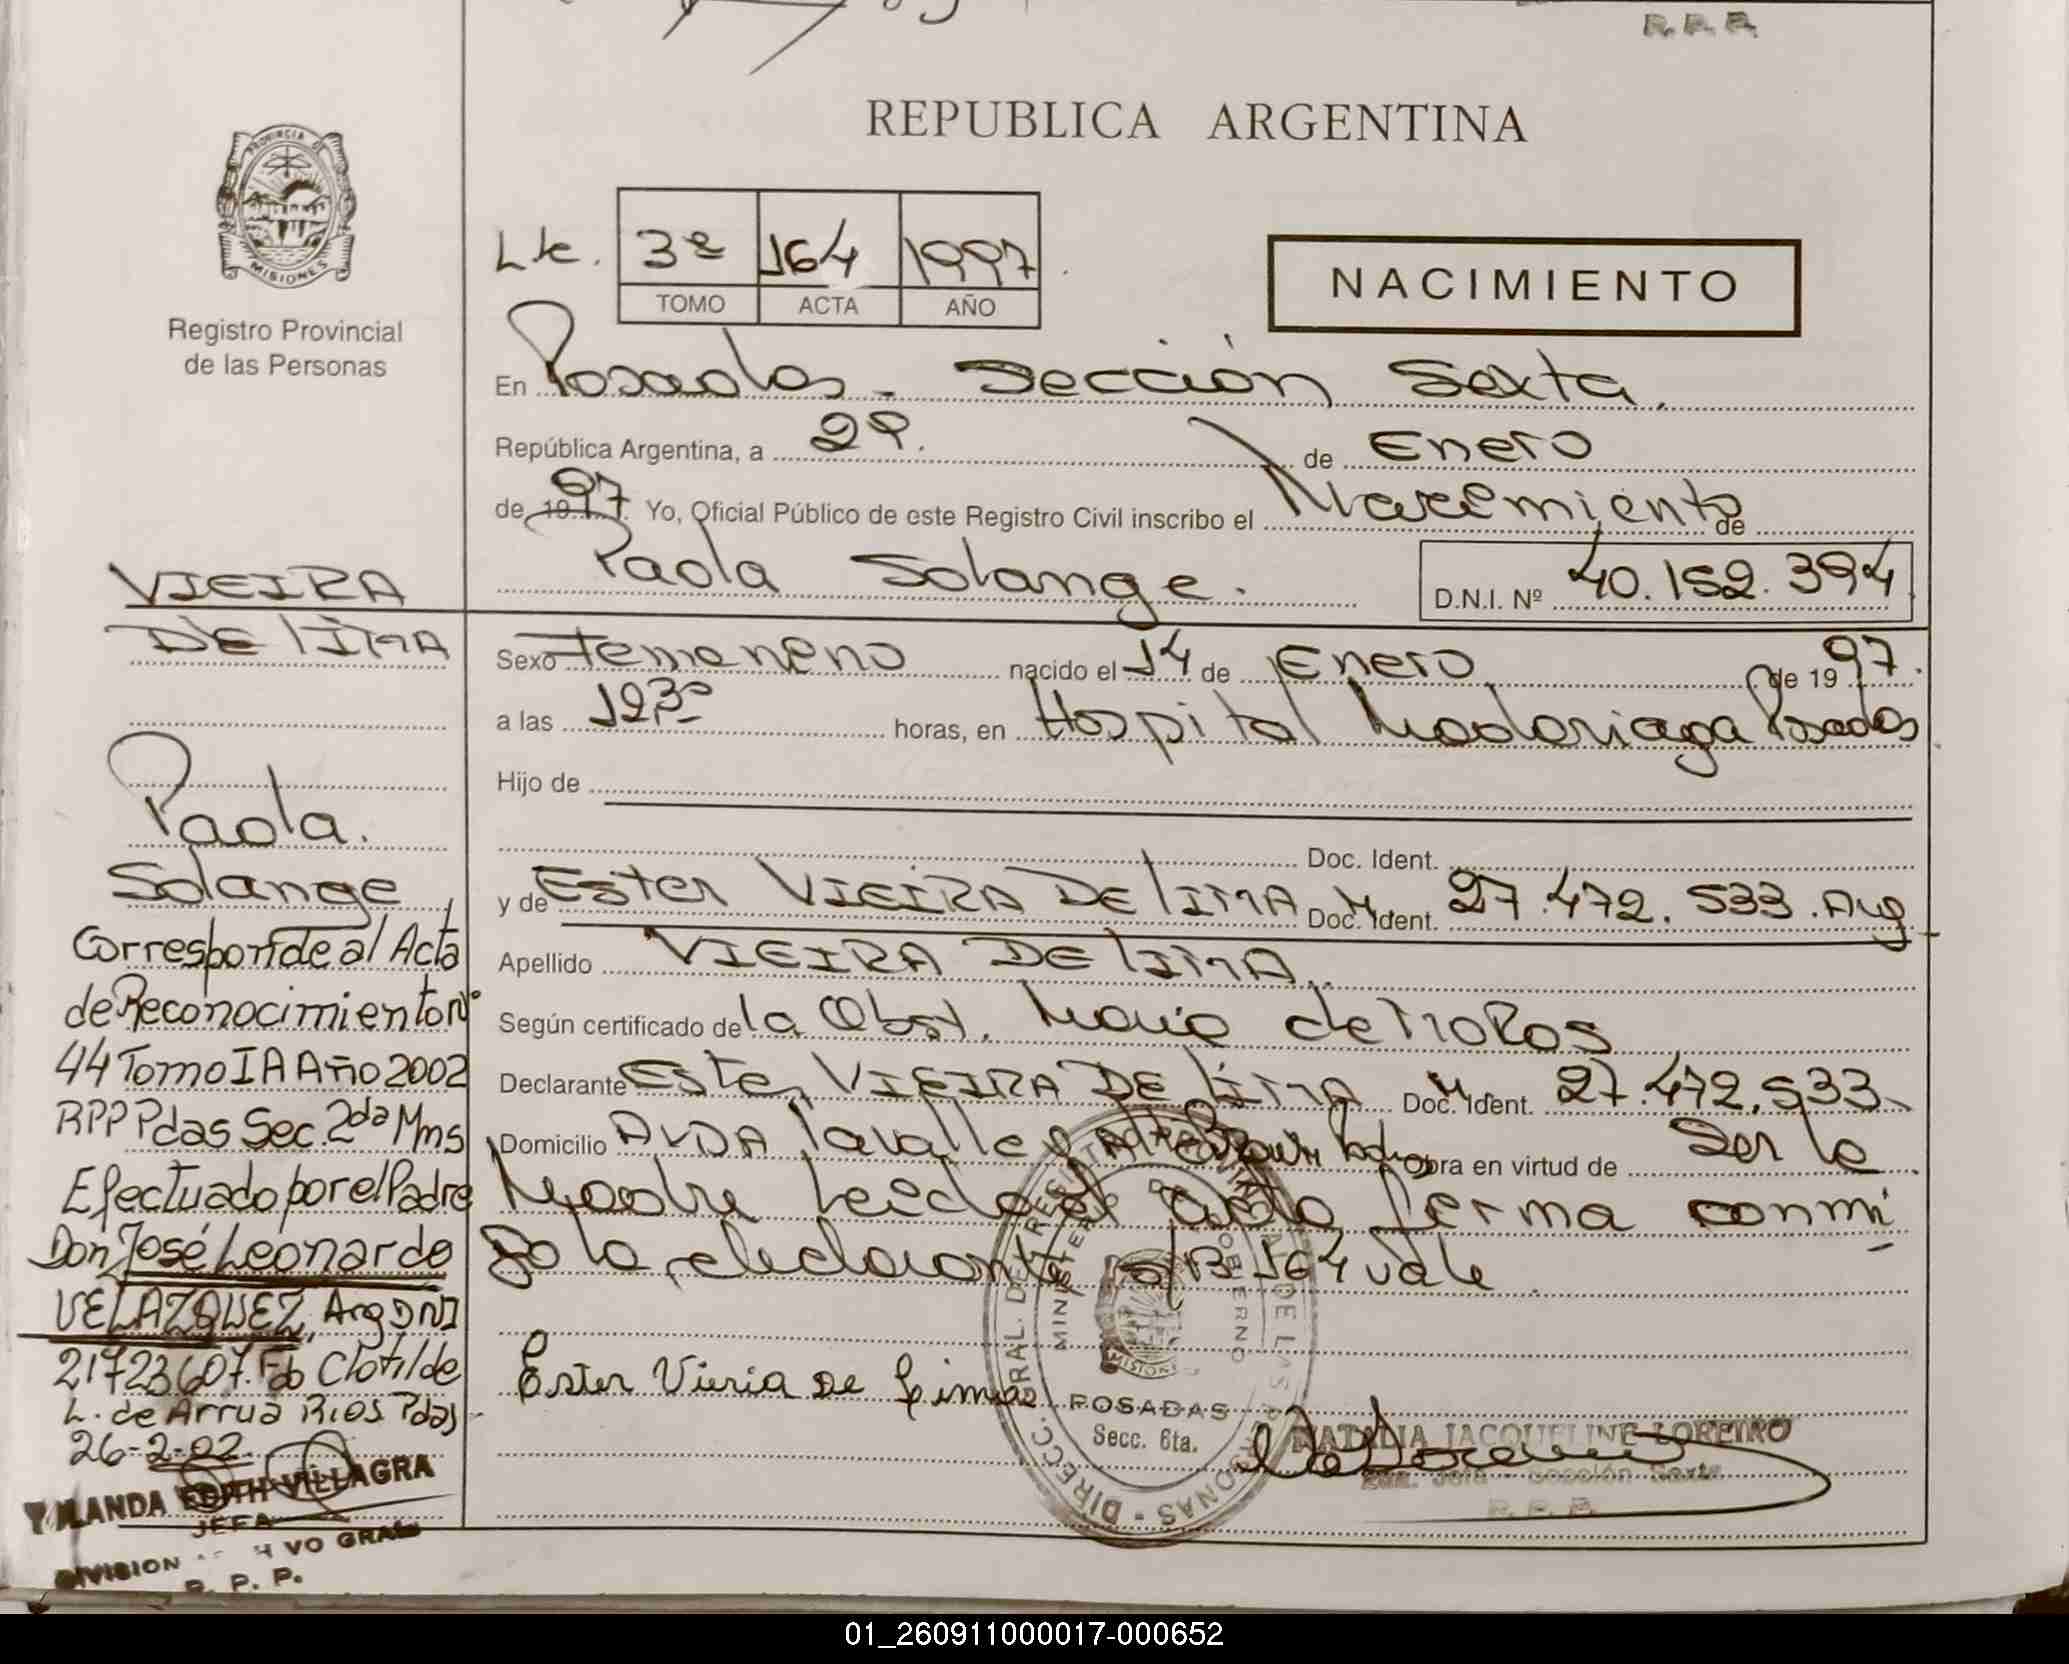 R. P. P.
REPUBLICA ARGENTINA
PROVINCIA DE
MISIONES
Registro Provincial
de las Personas
3º 164 1997
TOMO ACTA AÑO
NACIMIENTO
En Posadas - Sección Sexta
República Argentina, a 29. de Enero
de 1997. Yo, Oficial Público de este Registro Civil inscribo el Nacimiento de
Paola Solange. D.N.I. Nº 40.152.394
VIEIRA
DE LIMA
Paola.
Solange
Sexo Femenino nacido el 14 de Enero de 1997.
a las 12,30 horas, en Hospital Madariaga Posadas
Hijo de
Doc. Ident.
y de Ester VIEIRA DE LIMA Doc. Ident. 27.472.533. Arg
Apellido VIEIRA DE LIMA
Según certificado de la Obst. Maria
Declarante Ester VIEIRA DE LIMA Doc. Ident. 27.472.533
Domicilio AVDA Lavalle y obra en virtud de Ser la
Madre Leida el acta firma conmi
go la declarante s/B 164 vale
Ester Vieria De Lima
Corresponde al Acta
de Reconocimiento Nº
44 Tomo IA Año 2002
RPP Pdas Sec. 2da Mms
Efectuado por el Padre
Don José Leonardo
VELAZQUEZ, Arg DNI
21723607. Fdo Clotilde
L. de Arrua Rios Pdas
26-2-02
YOLANDA EDITH VILLAGRA
JEFA
DIVISION
R. P. P.
POSADAS
Secc. 6ta.
NATALIA JACQUELINE LOREIRO
Sección Sexta
R. P. P.
01_260911000017-000652